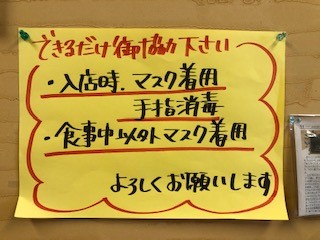 できるだけ御協力下さい
・入店時、マスク着用
手指消毒
・食事中以外マスク着用
よろしくお願いします